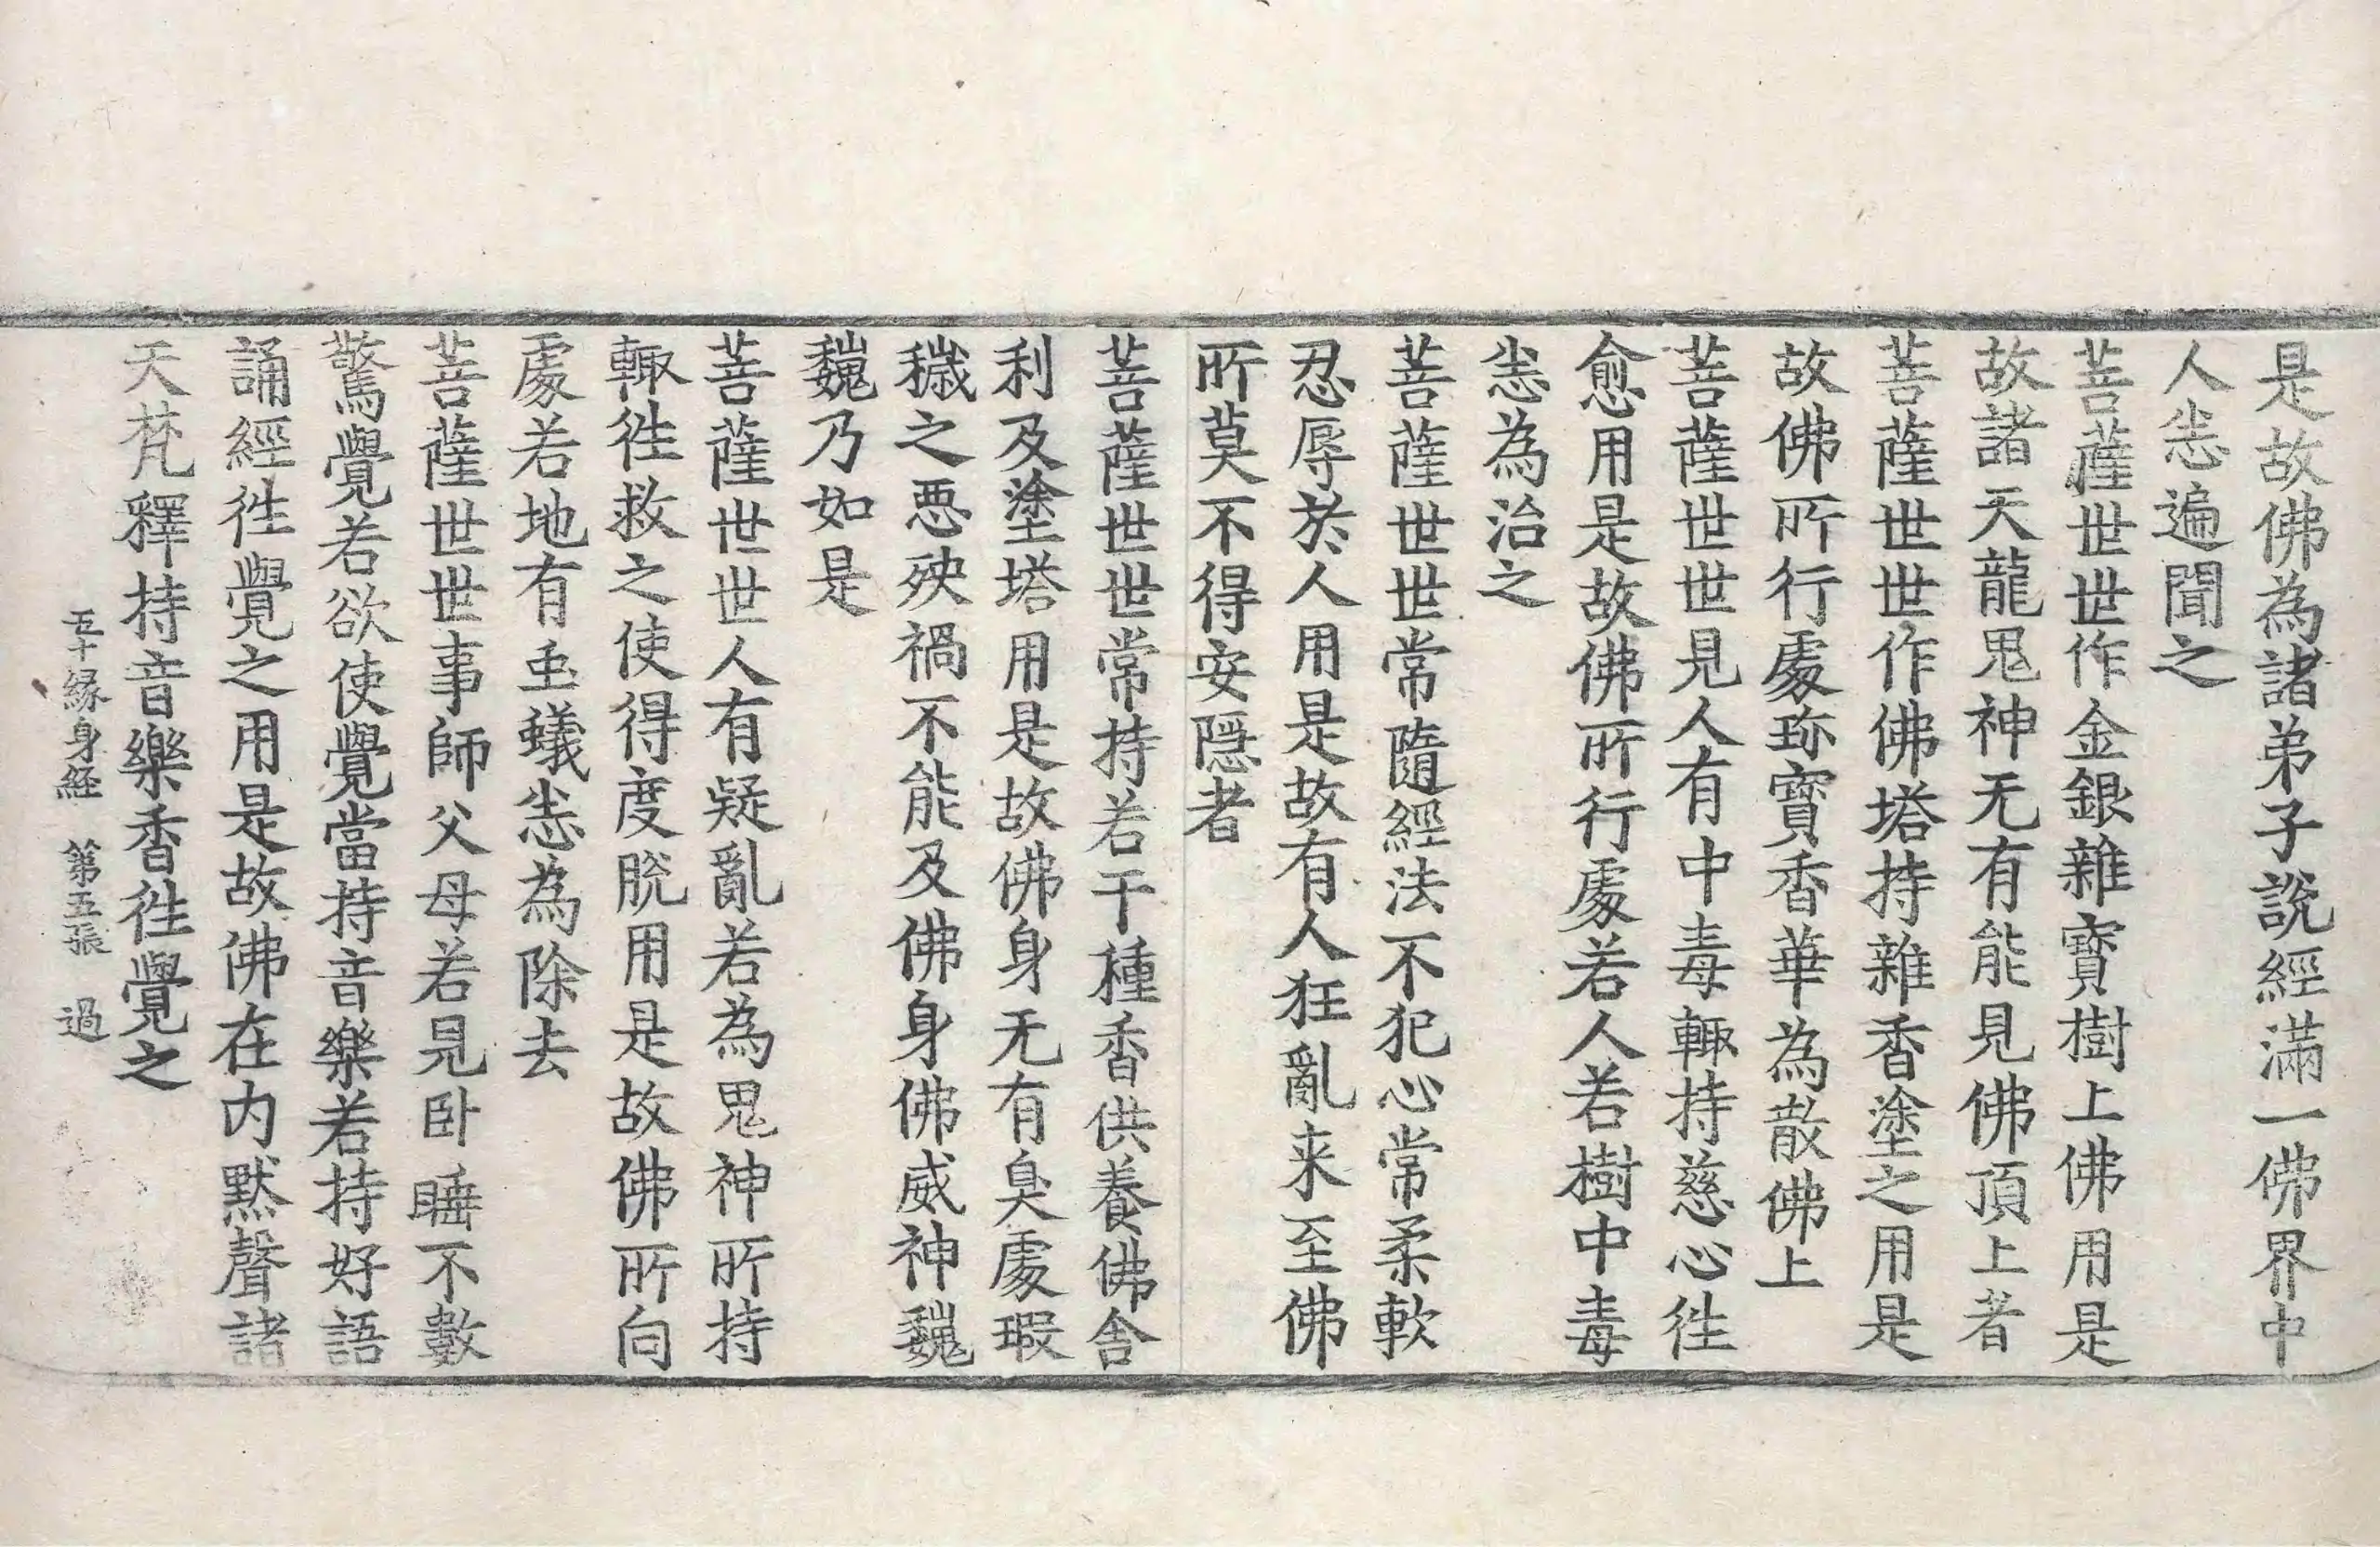 是故佛為諸弟子說經滿一佛界中
人恙遍聞之
菩薩世世作金銀雜寶樹上佛用是
故諸天龍鬼神无有能見佛頂上者
菩薩世世作佛塔持雜香塗之用是
故佛所行處珎寶香華為散佛上
菩薩世世見人有中毒輙持慈心徃
愈用是故佛所行處若人若樹中毒
恙為治之
菩薩世世常隨經法不犯心常柔軟
忍辱於人用是故有人狂亂来至佛
所莫不得安隱者
菩薩世世常持若干種香供養佛舍
利及塗塔用是故佛身无有臭處瑕
穢之惡殃禍不能及佛身佛威神巍
巍乃如是
菩薩世世人有疑亂若為鬼神所持
輙徃救之使得度脫用是故佛所向
處若地有䖝蟻恙為除去
菩薩世世事師父母若見卧睡不數
驚覺若欲使覺當持音樂若持好語
誦經徃覺之用是故佛在內默聲諸
天梵釋持音樂香徃覺之
五十縁身経　第五張　過